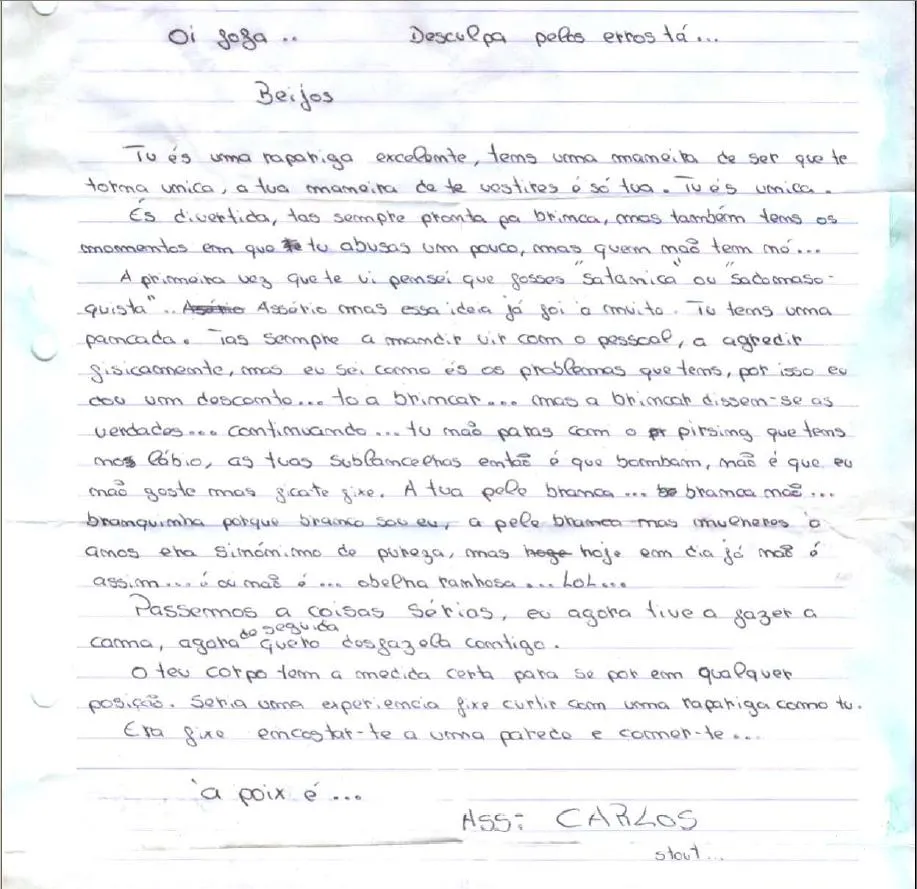 Oi fofa .. Desculpa pelos erros tá...
Beijos
Tu és uma rapariga excelente, tens uma maneira de ser que te
torna unica, a tua maneira de te vestires é só tua. Tu és unica.
És divertida, tas sempre pronta pa brinca, mas também tens os
momentos em que te tu abusas um pouco, mas quem não tem nó...
A primeira vez que te vi pensei que fosses "satanica" ou "sadomaso-
quista".. Assério Assério mas essa ideia já foi à muito. Tu tens uma
pancada. Tas sempre a mandir vir com o pessoal, a agredir
fisicamente, mas eu sei como és os problemas que tens, por isso eu
dou um desconto... to a brincar... mas a brincar dissem-se as
verdades... continuando... tu não paras com o pr pirsing que tens
nos lábio, as tuas sublancelhas então é que bombam, não é que eu
não goste mas ficate fixe. A tua pele branca... be branca não...
branquinha porque branco sou eu, a pele branca nas mulheres à
anos era sinónimo de pureza, mas hoge hoje em dia já não é
assim... é ou não é... abelha ranhosa... LoL...
Passemos a coisas sérias, eu agora tive a fazer a
cama, agora de seguida quero desfazela contigo.
O teu corpo tem a medida certa para se por em qualquer
posição. Seria uma experiencia fixe curtir com uma rapariga como tu.
Era fixe encostar-te a uma parede e comer-te...
'a poix é...
Ass: CARLOS
stout...